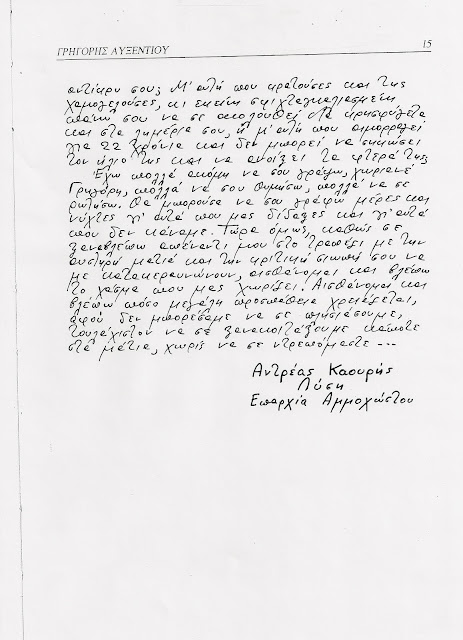 ΓΡΗΓΟΡΗΣ ΑΥΞΕΝΤΙΟΥ 15
αντίκρυ σου; Μ' αυτή που κρατούσες και της
χαμογελούσες, κι εκείνη σφιχταγκαλιασμένη
πάνω σου να σε ακολουθεί στα κρησφύγετα
και στα λημέρια σου, ή μ' αυτή που αιμορραγεί
για 22 χρόνια και δεν μπορεί να σηκώσει
τον ήλιο της και να ανοίξει τα φτερά της;
Έχω πολλά ακόμη να σου γράψω, χωριανέ
Γρηγόρη, πολλά να σου θυμίσω, πολλά να σε
ρωτήσω. Θα μπορούσα να σου γράφω μέρες και
νύχτες γι' αυτά που μας δίδαξες και γι' αυτά
που δεν κάναμε. Τώρα όμως, καθώς σε
ξαναβλέπω απέναντί μου στο τραπέζι με την
αυστηρή ματιά και την κριτική σιωπή σου να
με κατακεραυνώνουν, αισθάνομαι και βλέπω
το χάσμα που μας χωρίζει. Αισθάνομαι και
βλέπω πόσο μεγάλη προσπάθεια χρειάζεται,
αφού δεν μπορέσαμε να σε πλησιάσουμε,
τουλάχιστον να σε ξανακοιτάξουμε κάποτε
στα μάτια, χωρίς να σε ντρεπόμαστε ---
Αντρέας Καουρής
Λύση
Επαρχία Αμμοχώστου